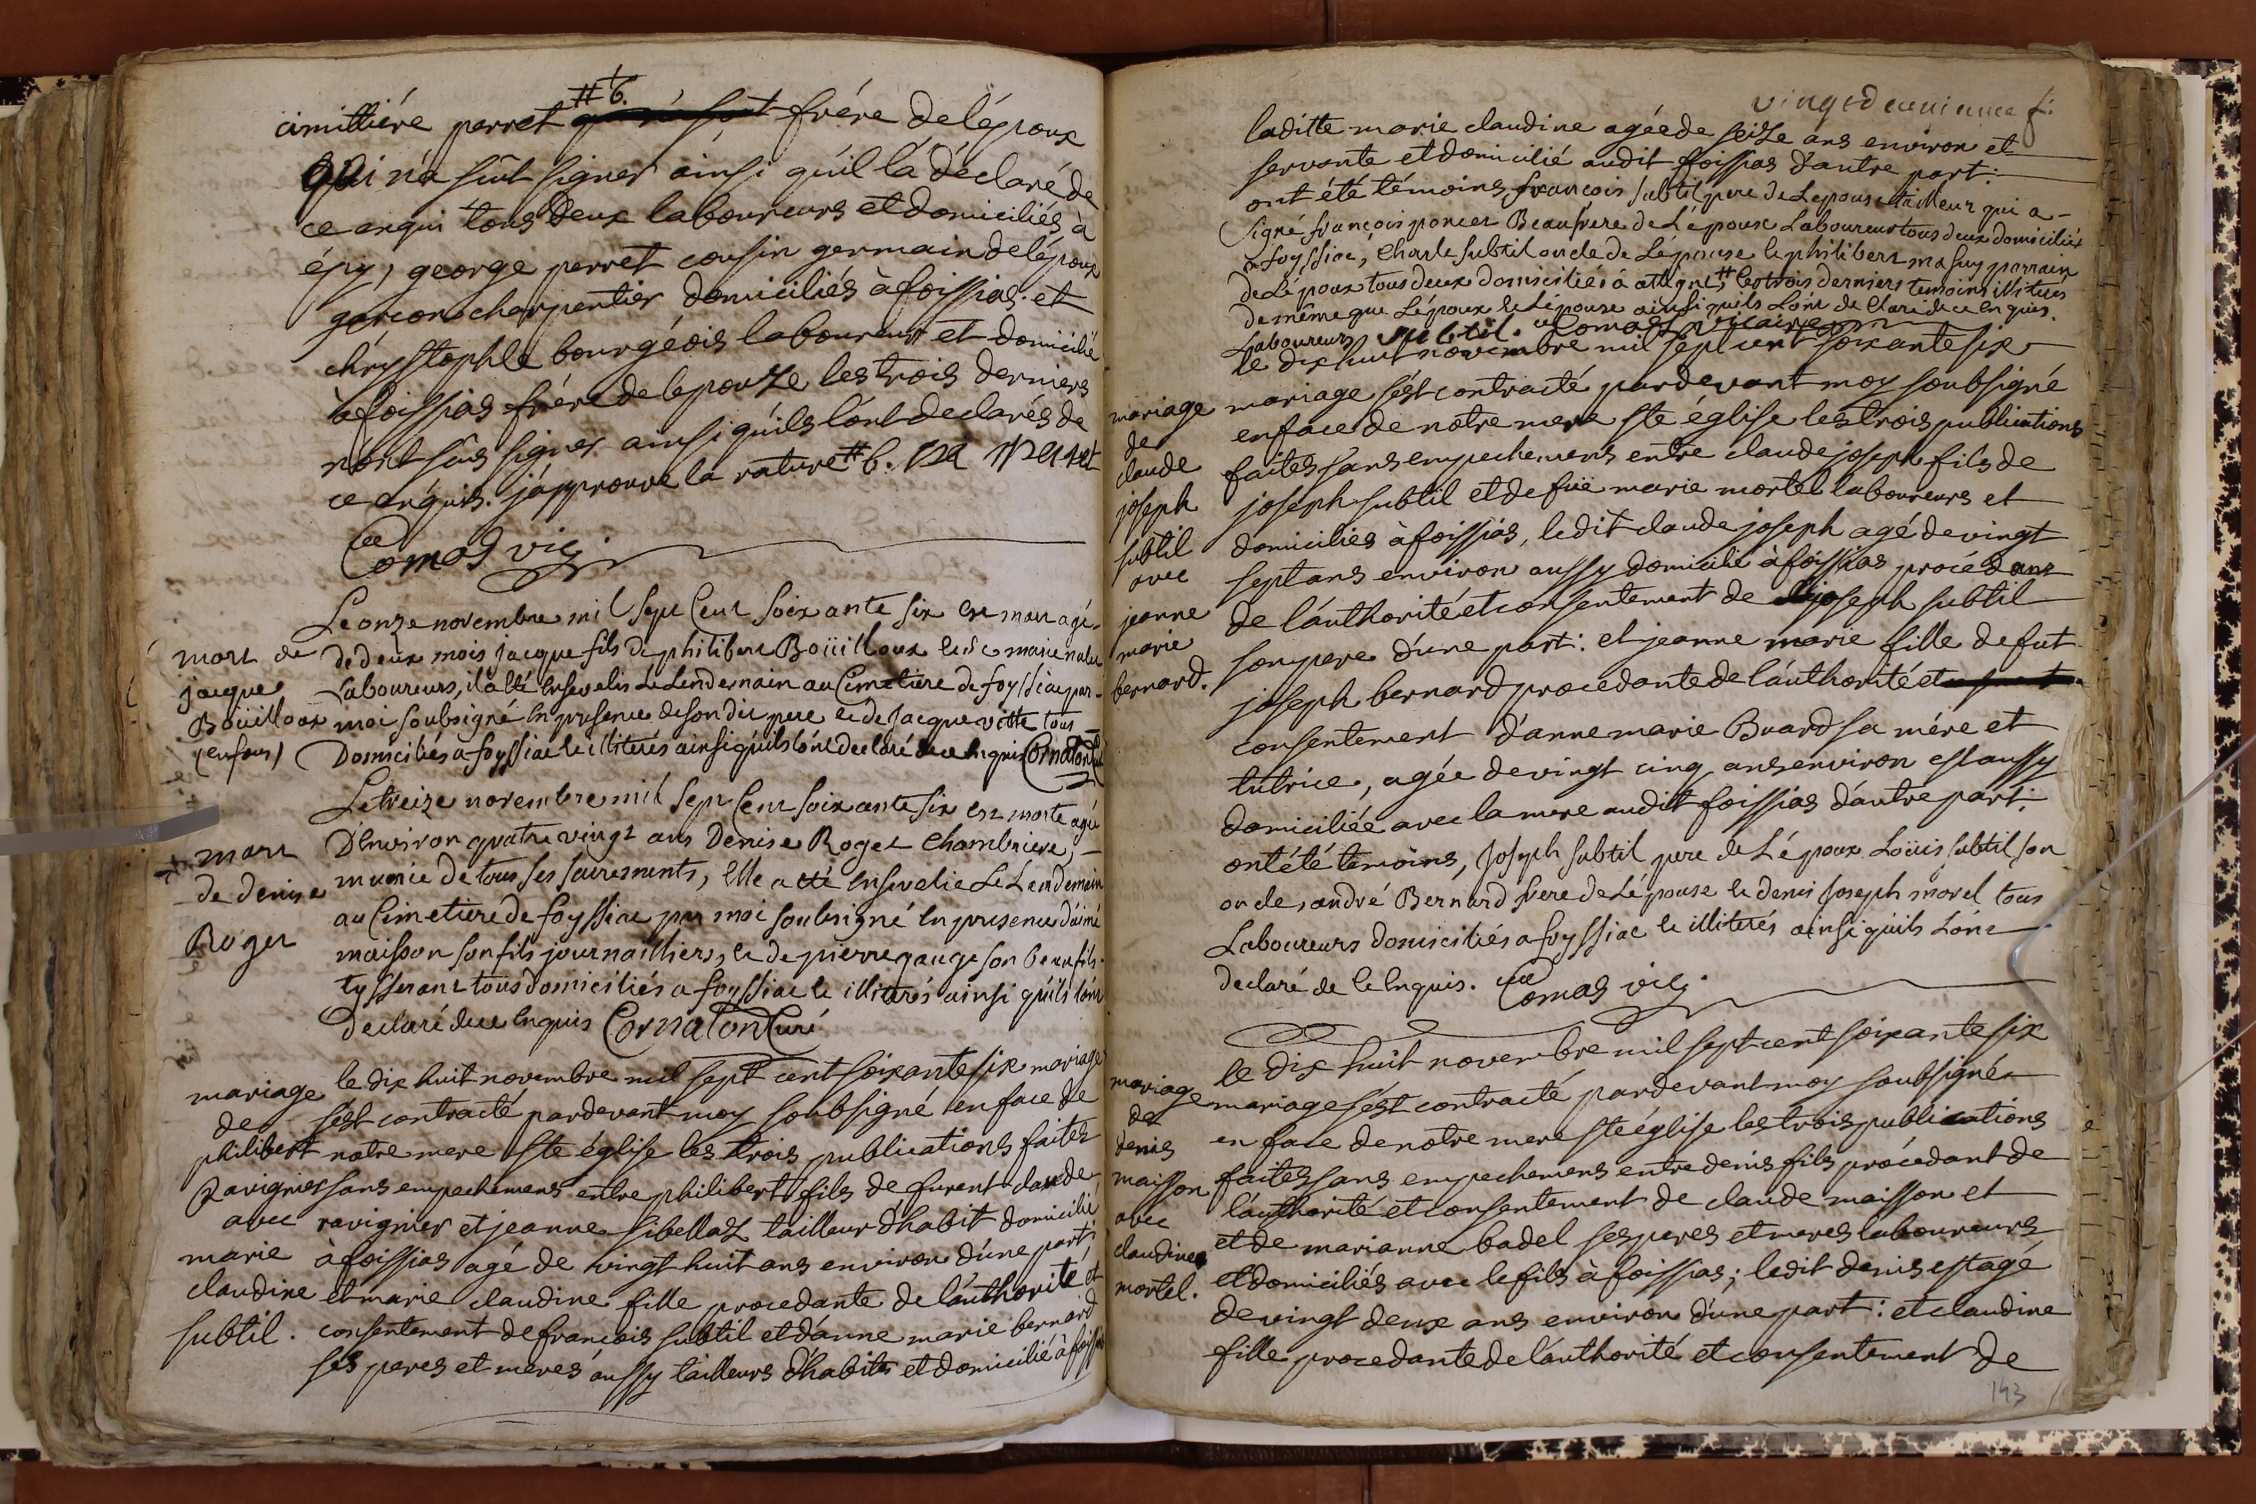 # 6.
cimittiére perret frére de lépoux
qui n'a sçut signer ainsi qu'il l'a déclaré de
ce enqui tous deux laboureurs et domiciliés à
épy, george perret cousin germain de lépoux
garcon charpentier domiciliés à foissias. et
chrystophle bourgéois laboureur et domicilié
à foissias frére de lepouze les trois derniers
n'ont sçus signer ainsi qu'ils l'ont declarés de
ce enquis. j'approuve la rature # 6. perret
Comas vic.
mort de
jacque
Boüilloux
(enfans)
Le onze novembre mil sept Cent soixante six est mort agé
de deux mois jacque fils de philibert Boüilloux et de marie
Laboureurs, il a été Enseveli Le Lendemain au Cimetiere de foyssiac par
moi soubsigné En presence de son dit pere et de jacque vitte tous
Domiciliés a foyssiac et illiterés ainsi qu'ils l'ont declaré de ce Enquis Cornaton
mort
de denise
Roger
Le treize novembre mil sept Cent soixante six est morte agée
D'Environ quatre vingt ans Denise Roger Chambriere,
munie de tous ses sacrements, Elle a été Ensevelie Le Lendemain
au Cimetiere de foyssiac par moi soubsigné En presence d'aimé
maisson son fils journaillier, et de pierre gauge son beaufils
tysserant tous domiciliés a foyssiac et illiterés ainsi qu'ils l'ont
Declaré de ce Enquis Cornaton Curé
mariage
de
philibert
Ravignier
avec
marie
claudine
subtil.
le dix huit novembre mil sept cent soixante six mariage
s'est contracté pardevant moy soubsigné en face de
notre mere ste église les trois publications faites
sans empechemens entre philibert fils de furent claude
ravignier et jeanne sibellaz tailleur d'habit domicilié
à foissias agé de vingt huit ans environ d'une part:
et marie claudine fille procedante de l'authorité et
consentement de francois subtil et d'anne marie bernard
ses peres et meres aussy tailleurs d'habits et domicilié à foissias
laditte marie claudine agée de seize ans environ et
servante et domicilié audit foissias d'autre part:
ont été témoins françois subtil pere de Lepouse tailleur qui a
signé françois poncet Beaufrere de Lépoux Laboureur tous deux domiciliés
a foyssiac, Charle subtil oncle de Lépouse et philibert masuy parrain
de Lépoux tous deux domiciliés a attignt # Les trois derniers temoins illiterés
de même que Lépoux et Lépouse ainsi qu'ils L'ont declaré de ce Enquis.
# Laboureurs subtil. Comas vicaire
mariage
de
claude
joseph
subtil
avec
jeanne
marie
bernard.
le dix huit novembre mil sept cent soixante six
mariage s'est contracté pardevant moy soubsigné
en face de notre mere ste église les trois publications
faites sans empechemens entre claude joseph fils de
joseph subtil et de fuë marie mortel laboureurs et
domiciliés à foissias, ledit claude joseph agé de vingt
sept ans environ aussy domicilié à foissias procédant
de l'authorité et consentement de joseph subtil
son pere d'une part: et jeanne marie fille de fut
joseph bernard procedante de l'authorité et
consentement d'anne marie Buard sa mére et
tutrice, agée de vingt cinq ans environ est aussy
domiciliée avec la mere audit foissias d'autre part:
ont été temoins, Joseph subtil pere de Lépoux Loüis subtil son
oncle, andré Bernard frere de Lépouse et denis Joseph morel tous
Laboureurs domiciliés a foyssiac et illiterés ainsi qu'ils L'ont
declaré de ce Enquis. Comas vic.
mariage
de
denis
maisson
avec
claudine
mortel.
le dix huit novembre mil sept cent soixante six
mariage s'est contracté pardevant moy soubsigné
en face de notre mere ste église les trois publications
faites sans empechemens entre denis fils procédant de
l'authorité et consentement de claude maisson et
et de marianne badel ses peres et meres laboureurs
et domiciliés avec le fils à foissias; ledit denis est agé
de vingt deux ans environ d'une part: et claudine
fille procedante de l'authorité et consentement de
143